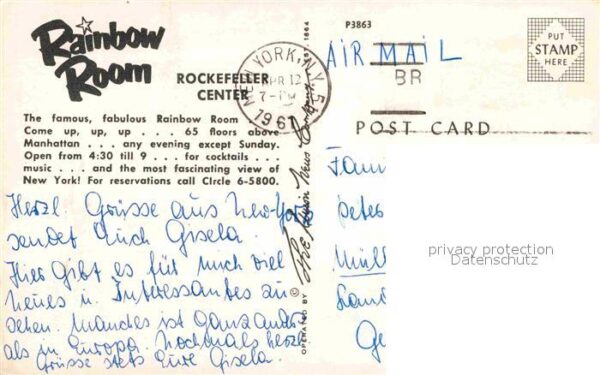 Rainbow
Room
ROCKEFELLER
CENTER
The famous, fabulous Rainbow Room
Come up, up, up . . . 65 floors above
Manhattan . . . any evening except Sunday.
Open from 4:30 till 9 . . . for cocktails . . .
music . . . and the most fascinating view of
New York! For reservations call CIrcle 6-5800.
Herzl. Grüsse aus New-York
sendet Euch Gisela.
Hier gibt es für mich viel
neues u. Interessantes zu
sehen. Manches ist ganz anders
als in Europa. Nochmals herzl.
Grüsse stets Eure Gisela.
NEW YORK, N.Y.
APR 12
7-PM
1961
© OPERATED BY
EST. 1864
P3863
AIR MAIL
BR
PUT
STAMP
HERE
POST CARD
Fam
Peter
Müll
Ge
privacy protection
Datenschutz